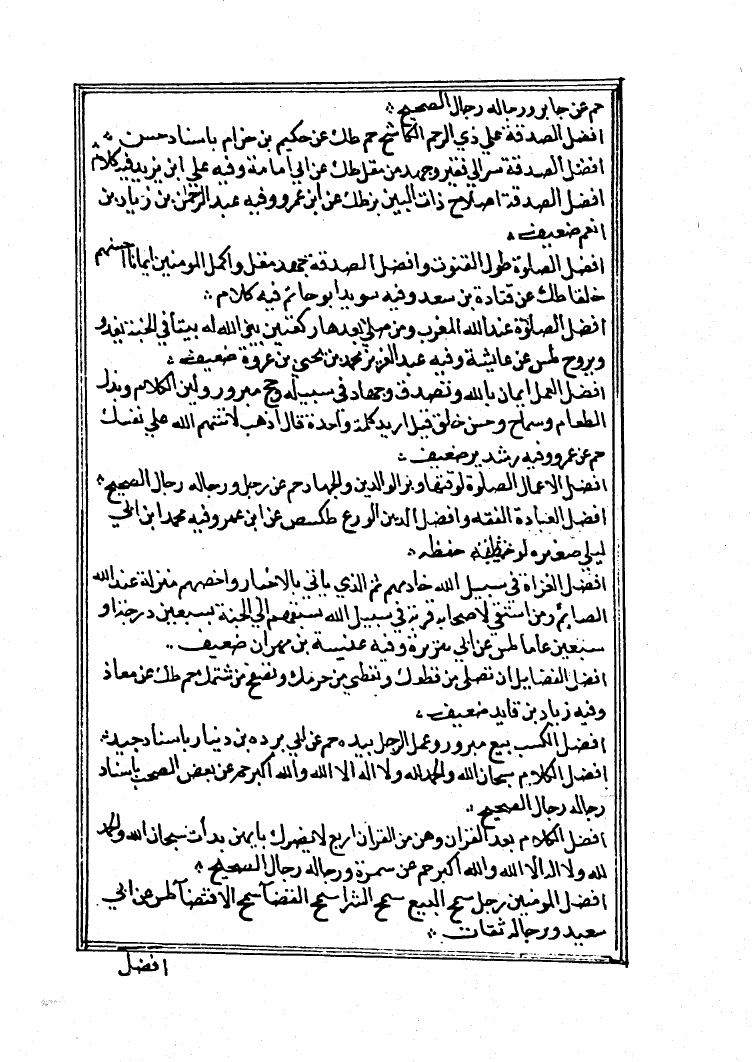 حم عن جابر ورجاله رجال الصحيح
افضل الصدقة علي ذي الرحم الكاشح حم طك عن حكيم بن حزام باسناد حسن
افضل الصدقة سر الي فقير وجهد من مقل طك عن ابي امامة وفيه علي ابن يزيد فيه كلام
افضل الصدقة اصلاح ذات البين بز طك عن ابن عمرو وفيه عبد الرحمن بن زياد بن
انعم ضعيف
افضل الصلوة طول القنوت وافضل الصدقة جهد مقل واكمل المومنين ايمانا احسنهم
خلقا طك عن قتادة بن سعد وفيه سويد ابو حاتم فيه كلام
افضل الصلوة عند الله المغرب ومن صلي بعدها ركعتين بني الله له بيتا في الجنة يغدو
ويروح طس عن عايشة وفيه عبد العزيز محمد بن يحيي بن عروة ضعيف
افضل العمل ايمان بالله وتصدق وجهاد في سبيله وحج مبرور ولين الكلام وبذل
الطعام وسماح وحسن خلق قيل اريد كلمة واحدة قال اذهب لا تتهم الله علي نفسك
حم عن عمرو وفيه رشدين ضعيف
افضل الاعمال الصلوة لوقتها وبر الوالدين والجهاد حم عن رجل ورجاله رجال الصحيح
افضل العبادة الفقه وافضل الدين الورع طكسص عن ابن عمر وفيه محمد ابن ابي
ليلي ضعفوه لو حفظه
افضل الغزاة في سبيل الله خادمهم ثم الذي ياتي بالاخبار واخصهم منزلة عند الله
الصايم ومن استقي لاصحابه قربة في سبيل الله سبقهم الي الجنة بسبعين درجة او
سبعين عاما طس عن ابي هريرة وفيه عنبسة بن مهران ضعيف
افضل الفضايل ان تصلي من قطعك وتعطي من حرمك وتصفح من شتمك حم طك عن معاذ
وفيه زياد بن فايد ضعيف
افضل الكسب بيع مبرور وعمل الرجل بيده حم عن ابي برده بن دينار باسناد جيد
افضل الكلام سبحان الله والحمد لله ولا اله الا الله والله أكبر حم عن بعض الصحب باسناد
رجاله رجال الصحيح
افضل الكلام بعد القران وهن من القران اربع لا يضرك بايهن بدأت سبحان الله والحمد
لله ولا اله الا الله والله أكبر حم عن سمرة ورجاله رجال الصحيح
افضل المومنين رجل سمح البيع سمح الشرا سمح القضا سمح الاقتضا طس عن ابي
سعيد ورجاله ثقات
افضل